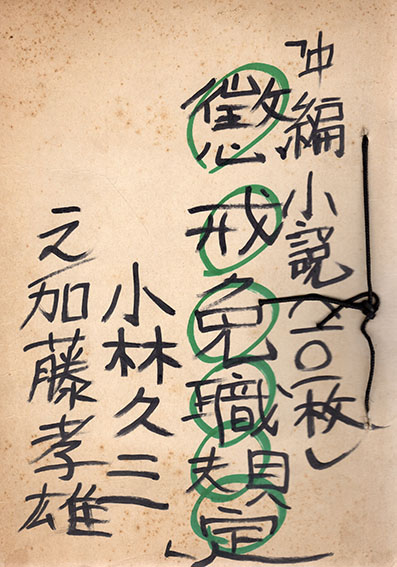 中編小説
懲戒免職規定」
小林久三
え加藤孝雄